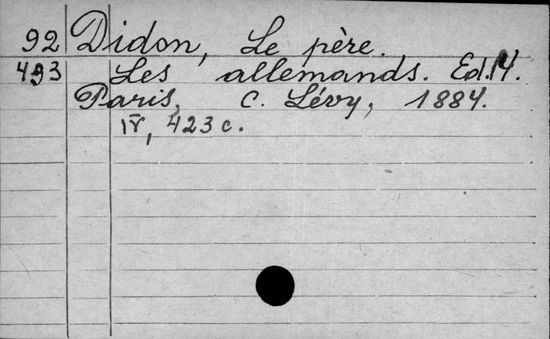 92 Didon, Le père.
493 Les allemands. Ed. 14.
Paris, C. Lévy, 1884.
IV, 423 c.